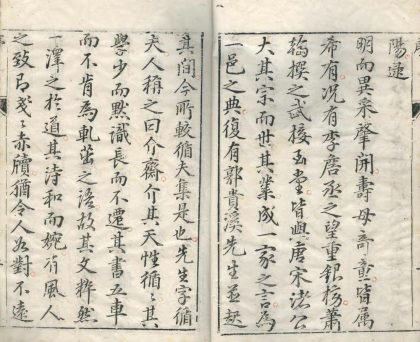 陽逮
明而異采肇開壽母奇皆属
希有况有李詹丞之望重銀榜蕭
翰撰之武接玉堂皆與唐宋諸公
大其宗而世其業成一家之言為
一邑之典復有郭貴溪先生並起
其間今所較循夫集是也先生字循
夫人稱之曰介齋介其天性循〻其
譽少而黙識長而不遷其書五車
而不肯為軋茁之語故其文粹然
一澤之於道其詩和而婉有風人
之致即戔〻赤牘猶令人對不遠